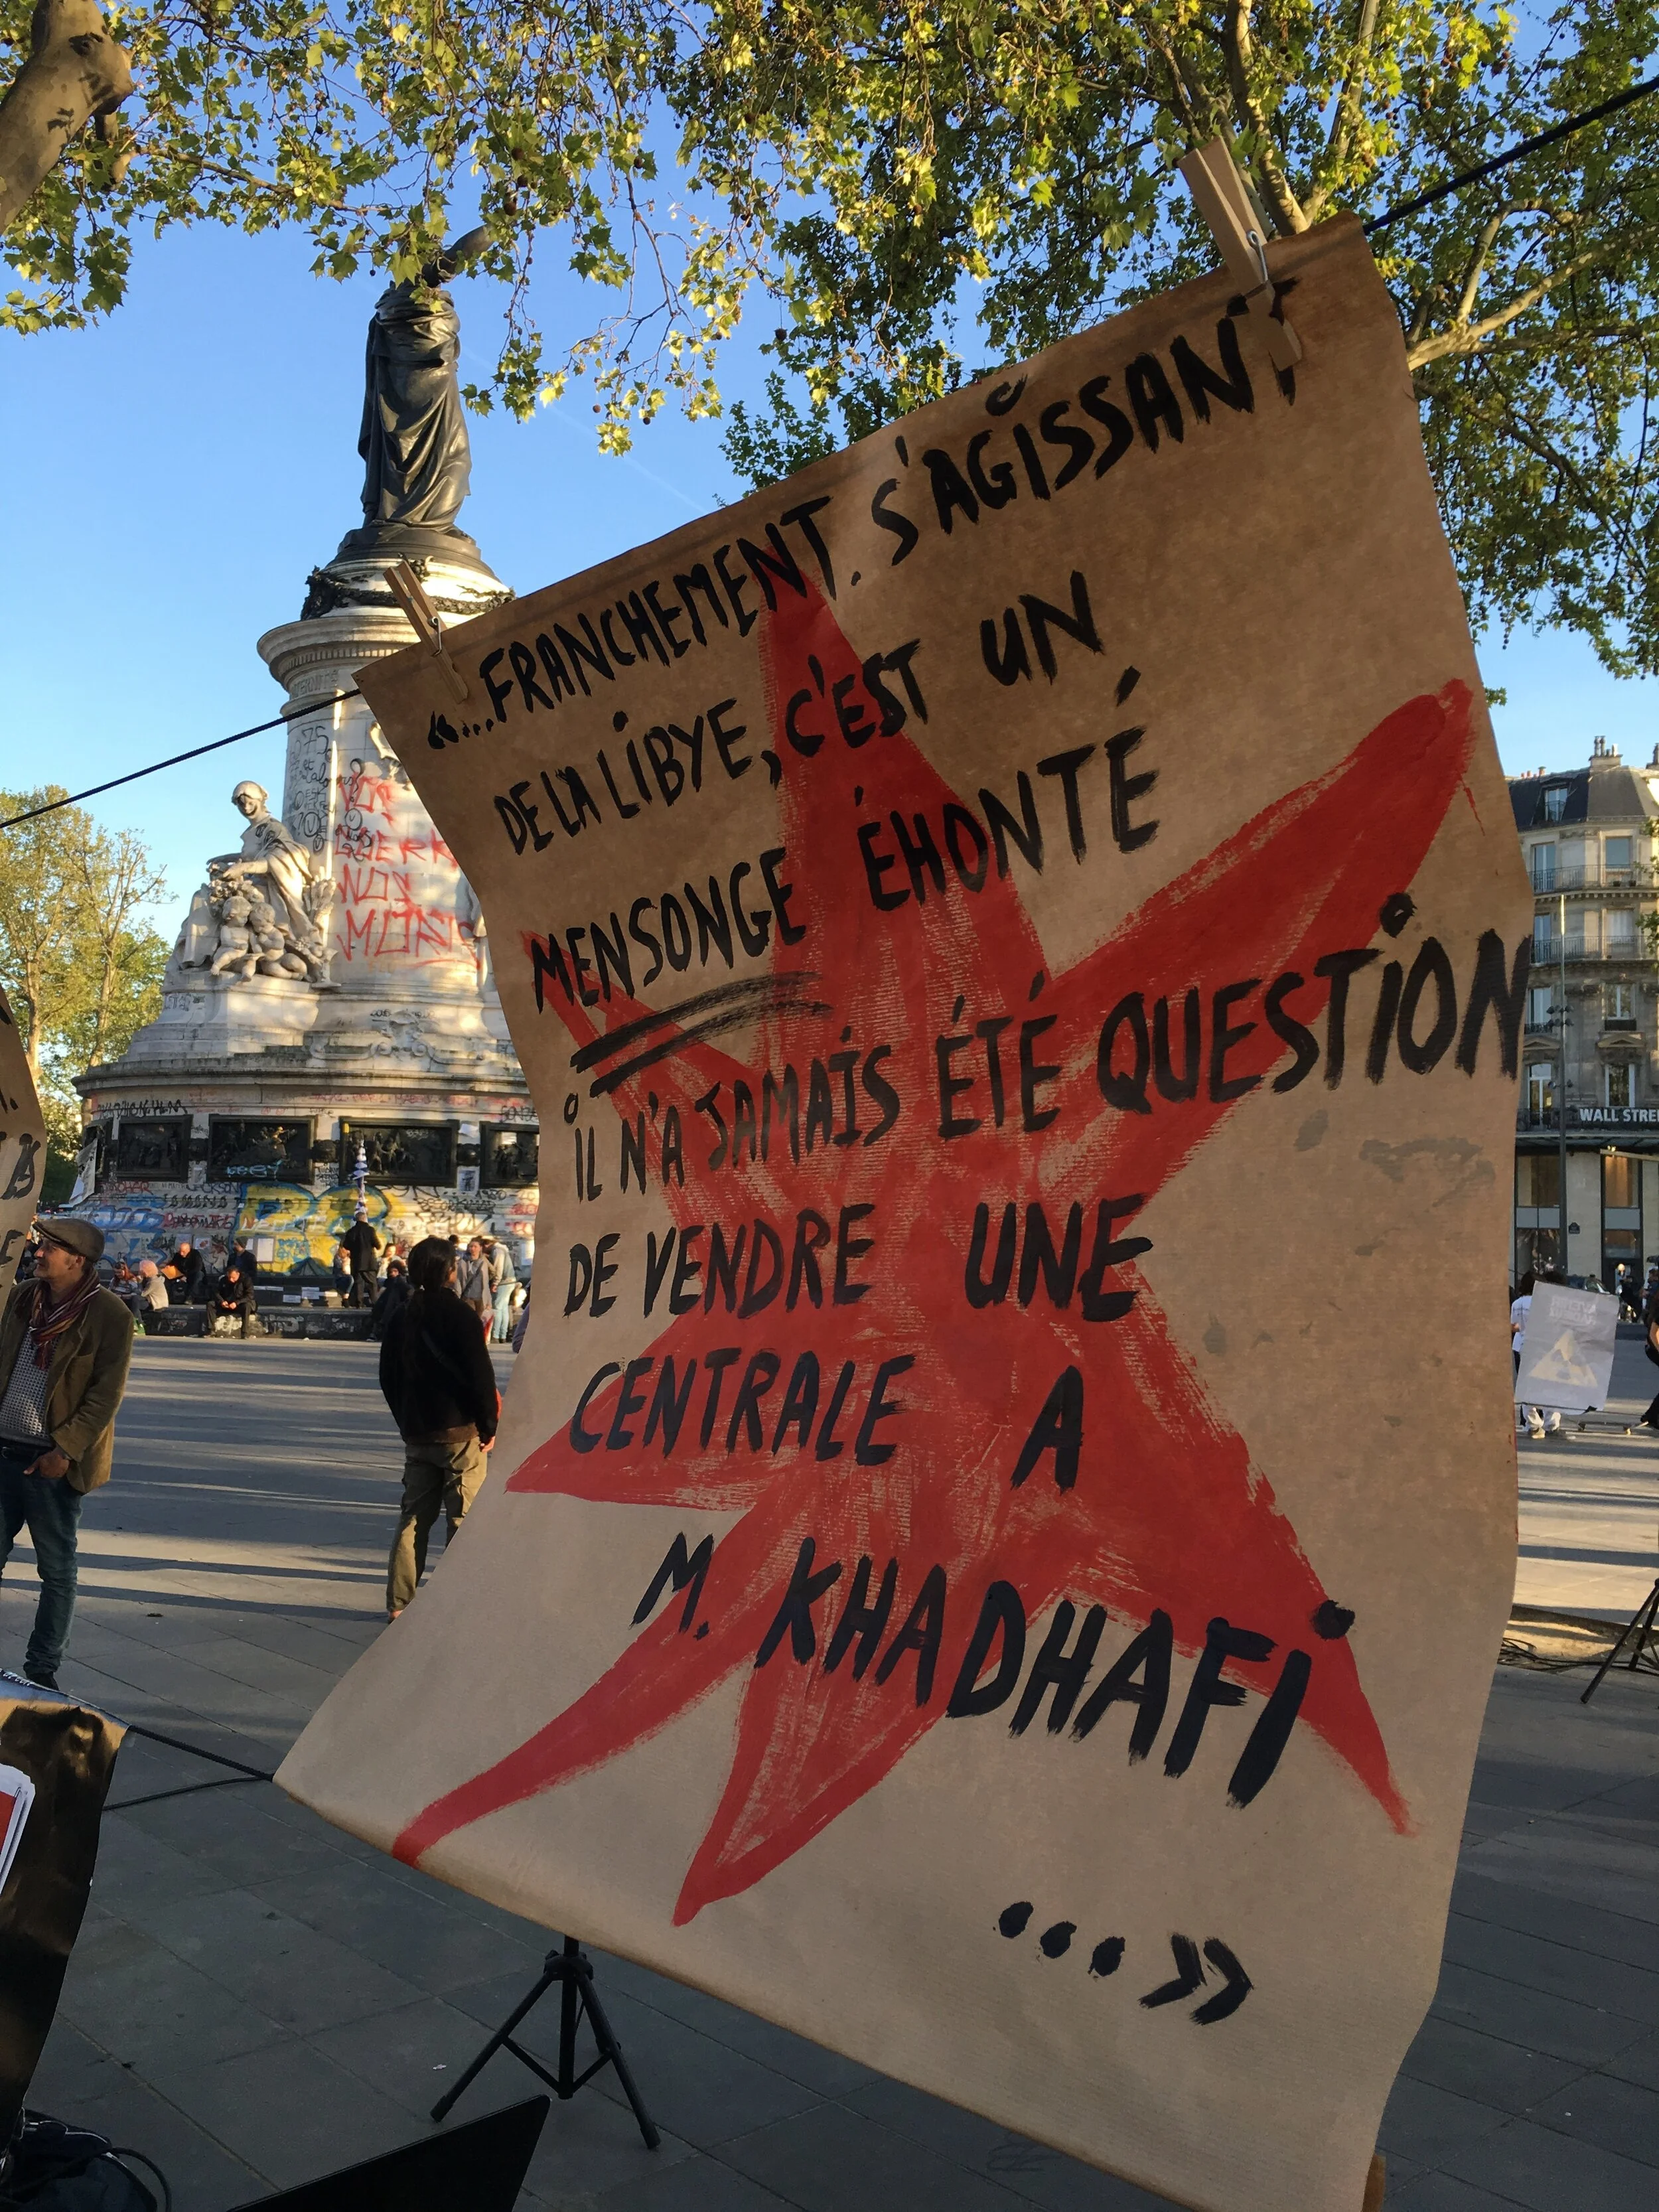 «...FRANCHEMENT. S'AGISSANT
DE LA LIBYE, C'EST UN
MENSONGE ÉHONTÉ
IL N'A JAMAIS ÉTÉ QUESTION
DE VENDRE UNE
CENTRALE A
M. KHADHAFI
...»
VOS
GUERR
NOS
MORTS
WALL STREE